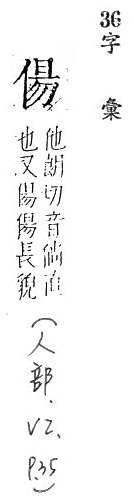 36字彙
偒
他朗切音倘直
也又偒偒長貌
（人部.V2、P.35）